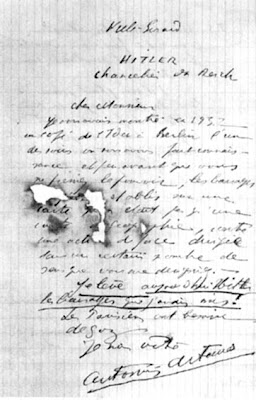 Ville-Evrard
HITLER
Chancelier du Reich
cher Monsieur
Je vous avais montré en 1932
au café de l'Ider à Berlin l'un
des soirs où nous avons fait connais-
sance et peu avant que vous
ne preniez le pouvoir, les barrages
établis sur une
carte qui n'était pas qu'une
carte de géographie, contre
moi action de force dirigée
dans un certain nombre de
sens que vous me désigniez.
Je lève aujourd'hui Hitler
les barrages que j'avais mis!
Les Parisiens ont besoin
de gaz
Je suis votre
Antonin Artaud